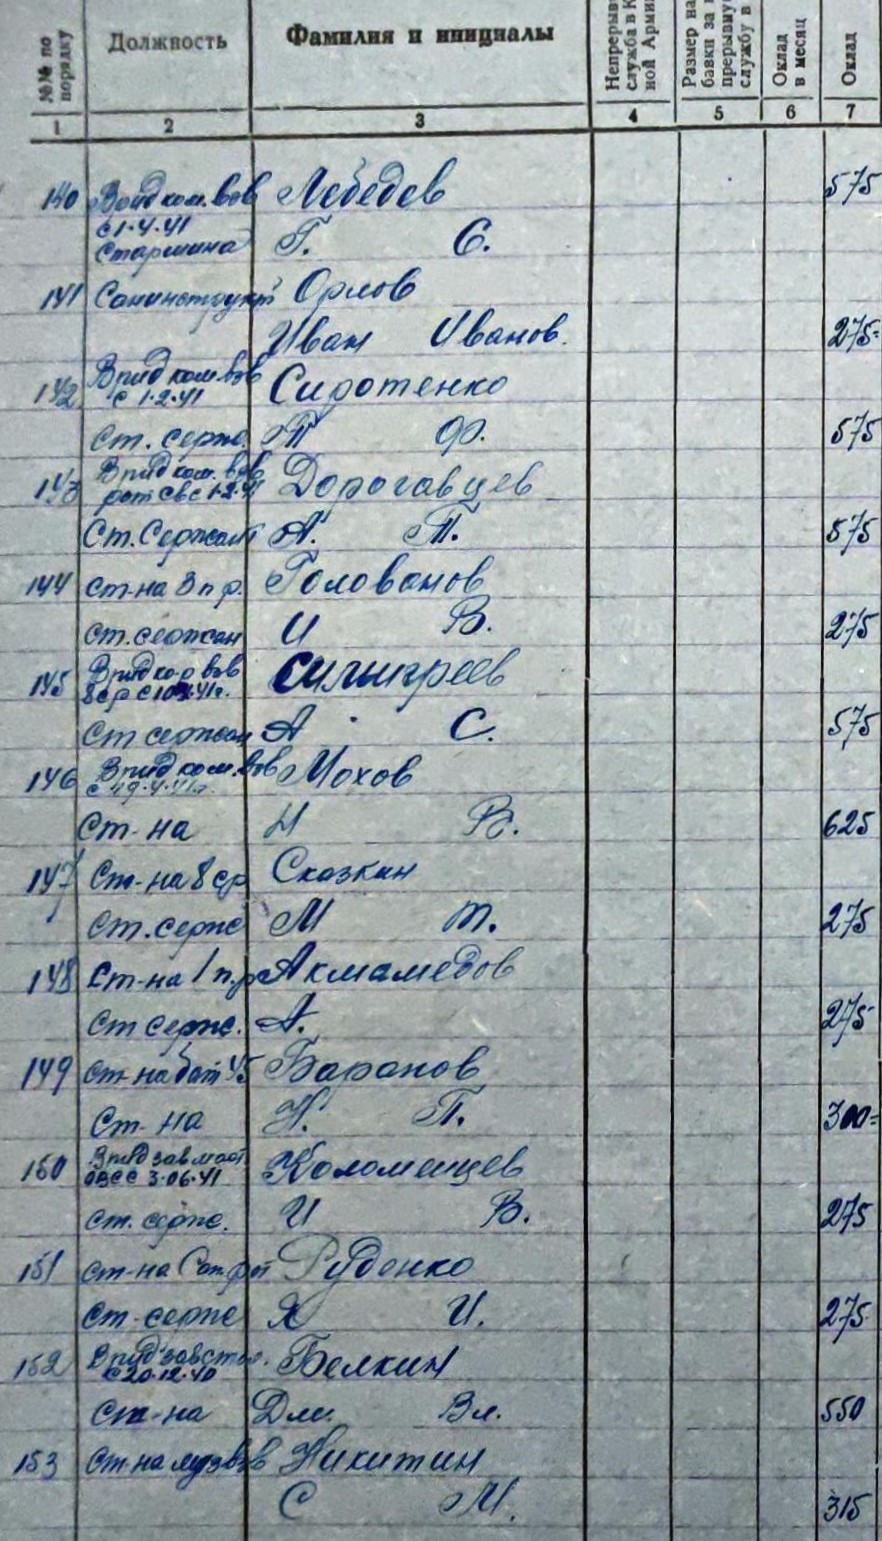 №№ по порядку
Должность
Фамилия и инициалы
Непрерыв
служба в К
ной Арми
Размер на
бавки за
прерывну
службу в
Оклад в месяц
Оклад
1 2 3 4 5 6 7
140 Врид ком. взв Лебедев 575
с 1.4.41
Старшина Г. С.
141 Санинструкт Орлов
Иван Иванов. 275=
142 Врид ком. взв Сиротенко
с 1.2.41
Ст. серж. Ф. 575
143 Врид ком. взв Дорогавцев
с 1.2.41
Ст. Сержант А. П. 575
144 ст-на 3 п р. Голованов
ст. сержан И В. 275
145 Врид ко-р взв
8 ср с
Ст сержан А С. 575
146 Врид ком. взв Мохов
Ст-на Н В. 625
147 Ст-на 8 ср Сказкин
Ст. серж М Т. 275
148 Ст-на 1 п.р Акмамедов
Ст серж. А. 275
149 Ст-на бат 45 Баранов
Ст-на Н. П. 300=
150 Врид зав маст Коломенцев
ОВС с 3.06.41
Ст. серж. И В. 275
151 Ст-на Руденко
Ст-серж Я И. 275
152 Врид завст Белкин
с 20.12.40
Ст-на Дм. Вл. 550
153 Ст-на муз взв Никитин
С М. 315